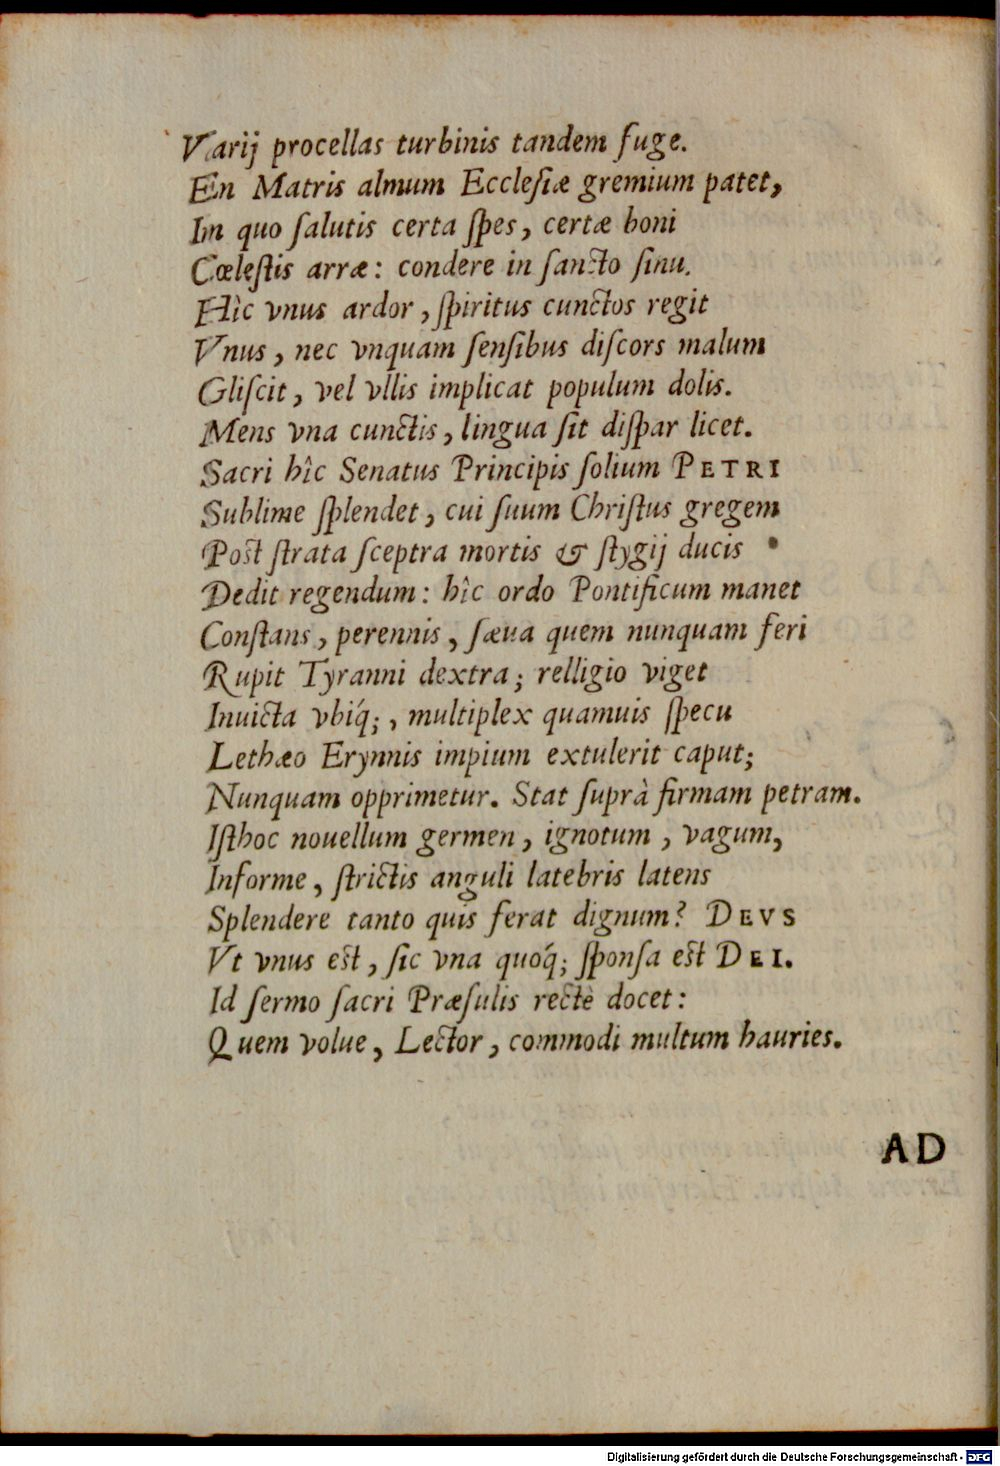 Varij procellas turbinis tandem fuge.
En Matris almum Ecclesiæ gremium patet,
In quo salutis certa spes, certæ boni
Cœlestis arræ: condere in sancto sinu.
Hîc vnus ardor, spiritus cunctos regit
Vnus, nec vnquam sensibus discors malum
Gliscit, vel vllis implicat populum dolis.
Mens vna cunctis, lingua sit dispar licet.
Sacri hîc Senatus Principis solium PETRI
Sublime splendet, cui suum Christus gregem
Post strata sceptra mortis & stygij ducis
Dedit regendum: hîc ordo Pontificum manet
Constans, perennis, sæua quem nunquam feri
Rupit Tyranni dextra; relligio viget
Inuicta vbiq́;, multiplex quamuis specu
Lethæo Erynnis impium extulerit caput;
Nunquam opprimetur. Stat suprà firmam petram.
Isthoc nouellum germen, ignotum, vagum,
Informe, strictis anguli latebris latens
Splendere tanto quis ferat dignum? DEVS
Vt vnus est, sic vna quoq́; sponsa est DEI.
Id sermo sacri Præsulis rectè docet:
Quem volue, Lector, commodi multum hauries.
AD
Digitalisierung gefördert durch die Deutsche Forschungsgemeinschaft - DFG